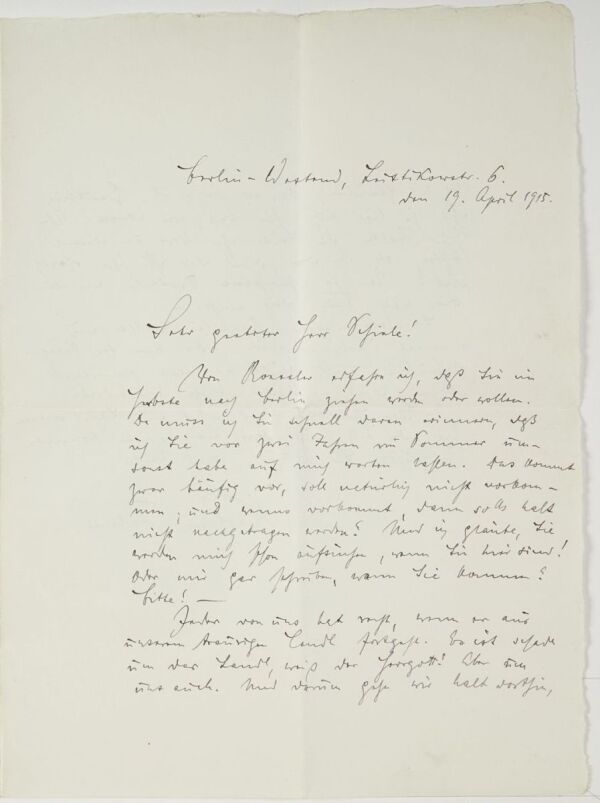 Berlin-Westend, Lützikowstr. 6.
den 19. April 1915.
Sehr geehrter Herr Schiele!
Von Roessler erfahre ich, daß Sie im
Herbste nach Berlin ziehen werden oder wollen.
Da muss ich Sie schnell daran erinnern, daß
ich Sie vor zwei Jahren im Sommer um-
sonst habe auf mich warten lassen. Das kommt
zwar häufig vor, soll natürlich nicht vorkom-
men; und wenns vorkommt, dann solls halt
nicht nachgetragen werden? Und ich glaube, Sie
werden mich schon aufsuchen, wenn Sie hier sind!
Oder mir gar schreiben, wann Sie kommen?
Bitte! —
Jeder von uns hat recht, wenn er aus
unserem traurigen Landl fortgeht. Es ist schade
um das Landl, weiß der Herrgott! Aber um
uns auch. Und darum gehe wir halt dorthin,